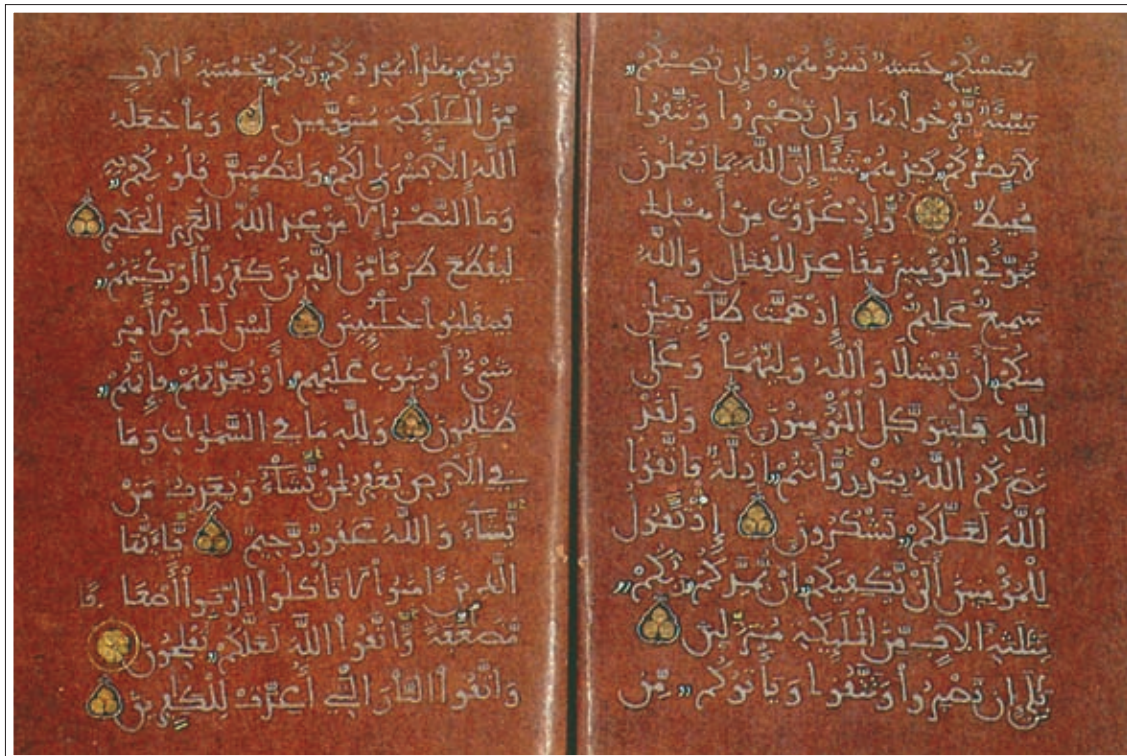 تمسسكم حسنة تسؤهم وإن تصبكم
سيئة يفرحوا بها وإن تصبروا وتتقوا
لا يضركم كيدهم شيئا إن الله بما يعملون
محيط وإذ غدوت من أهلك
تبوئ المؤمنين مقعد للقتال والله
سميع عليم إذ همت طائفتن
منكم أن تفشلا والله وليهما وعلى
الله فليتوكل المؤمنون ولقد
نصركم الله ببدر وأنتم أذلة فاتقوا
الله لعلكم تشكرون إذ تقول
للمؤمنين ألن يكفيكم أن يمدكم ربكم
بثلثة ءالف من الملئكة منزلين
بلى إن تصبروا وتتقوا ويأتوكم من
فورهم هذا يمددكم ربكم بخمسة ءالف
من الملئكة مسومين وما جعله
الله إلا بشرى لكم ولتطمئن قلوبكم به
وما النصر إلا من عند الله العزيز الحكيم
ليقطع طرفا من الذين كفروا أو يكبتهم
فينقلبوا خائبين ليس لك من الأمر
شيء أو يتوب عليهم أو يعذبهم فإنهم
ظلمون ولله ما في السموت وما
في الأرض يغفر لمن يشاء ويعذب من
يشاء والله غفور رحيم يأيها
الذين ءامنوا لا تأكلوا الربوا أضعفا
مضعفة واتقوا الله لعلكم تفلحون
واتقوا النار التي أعدت للكفرين